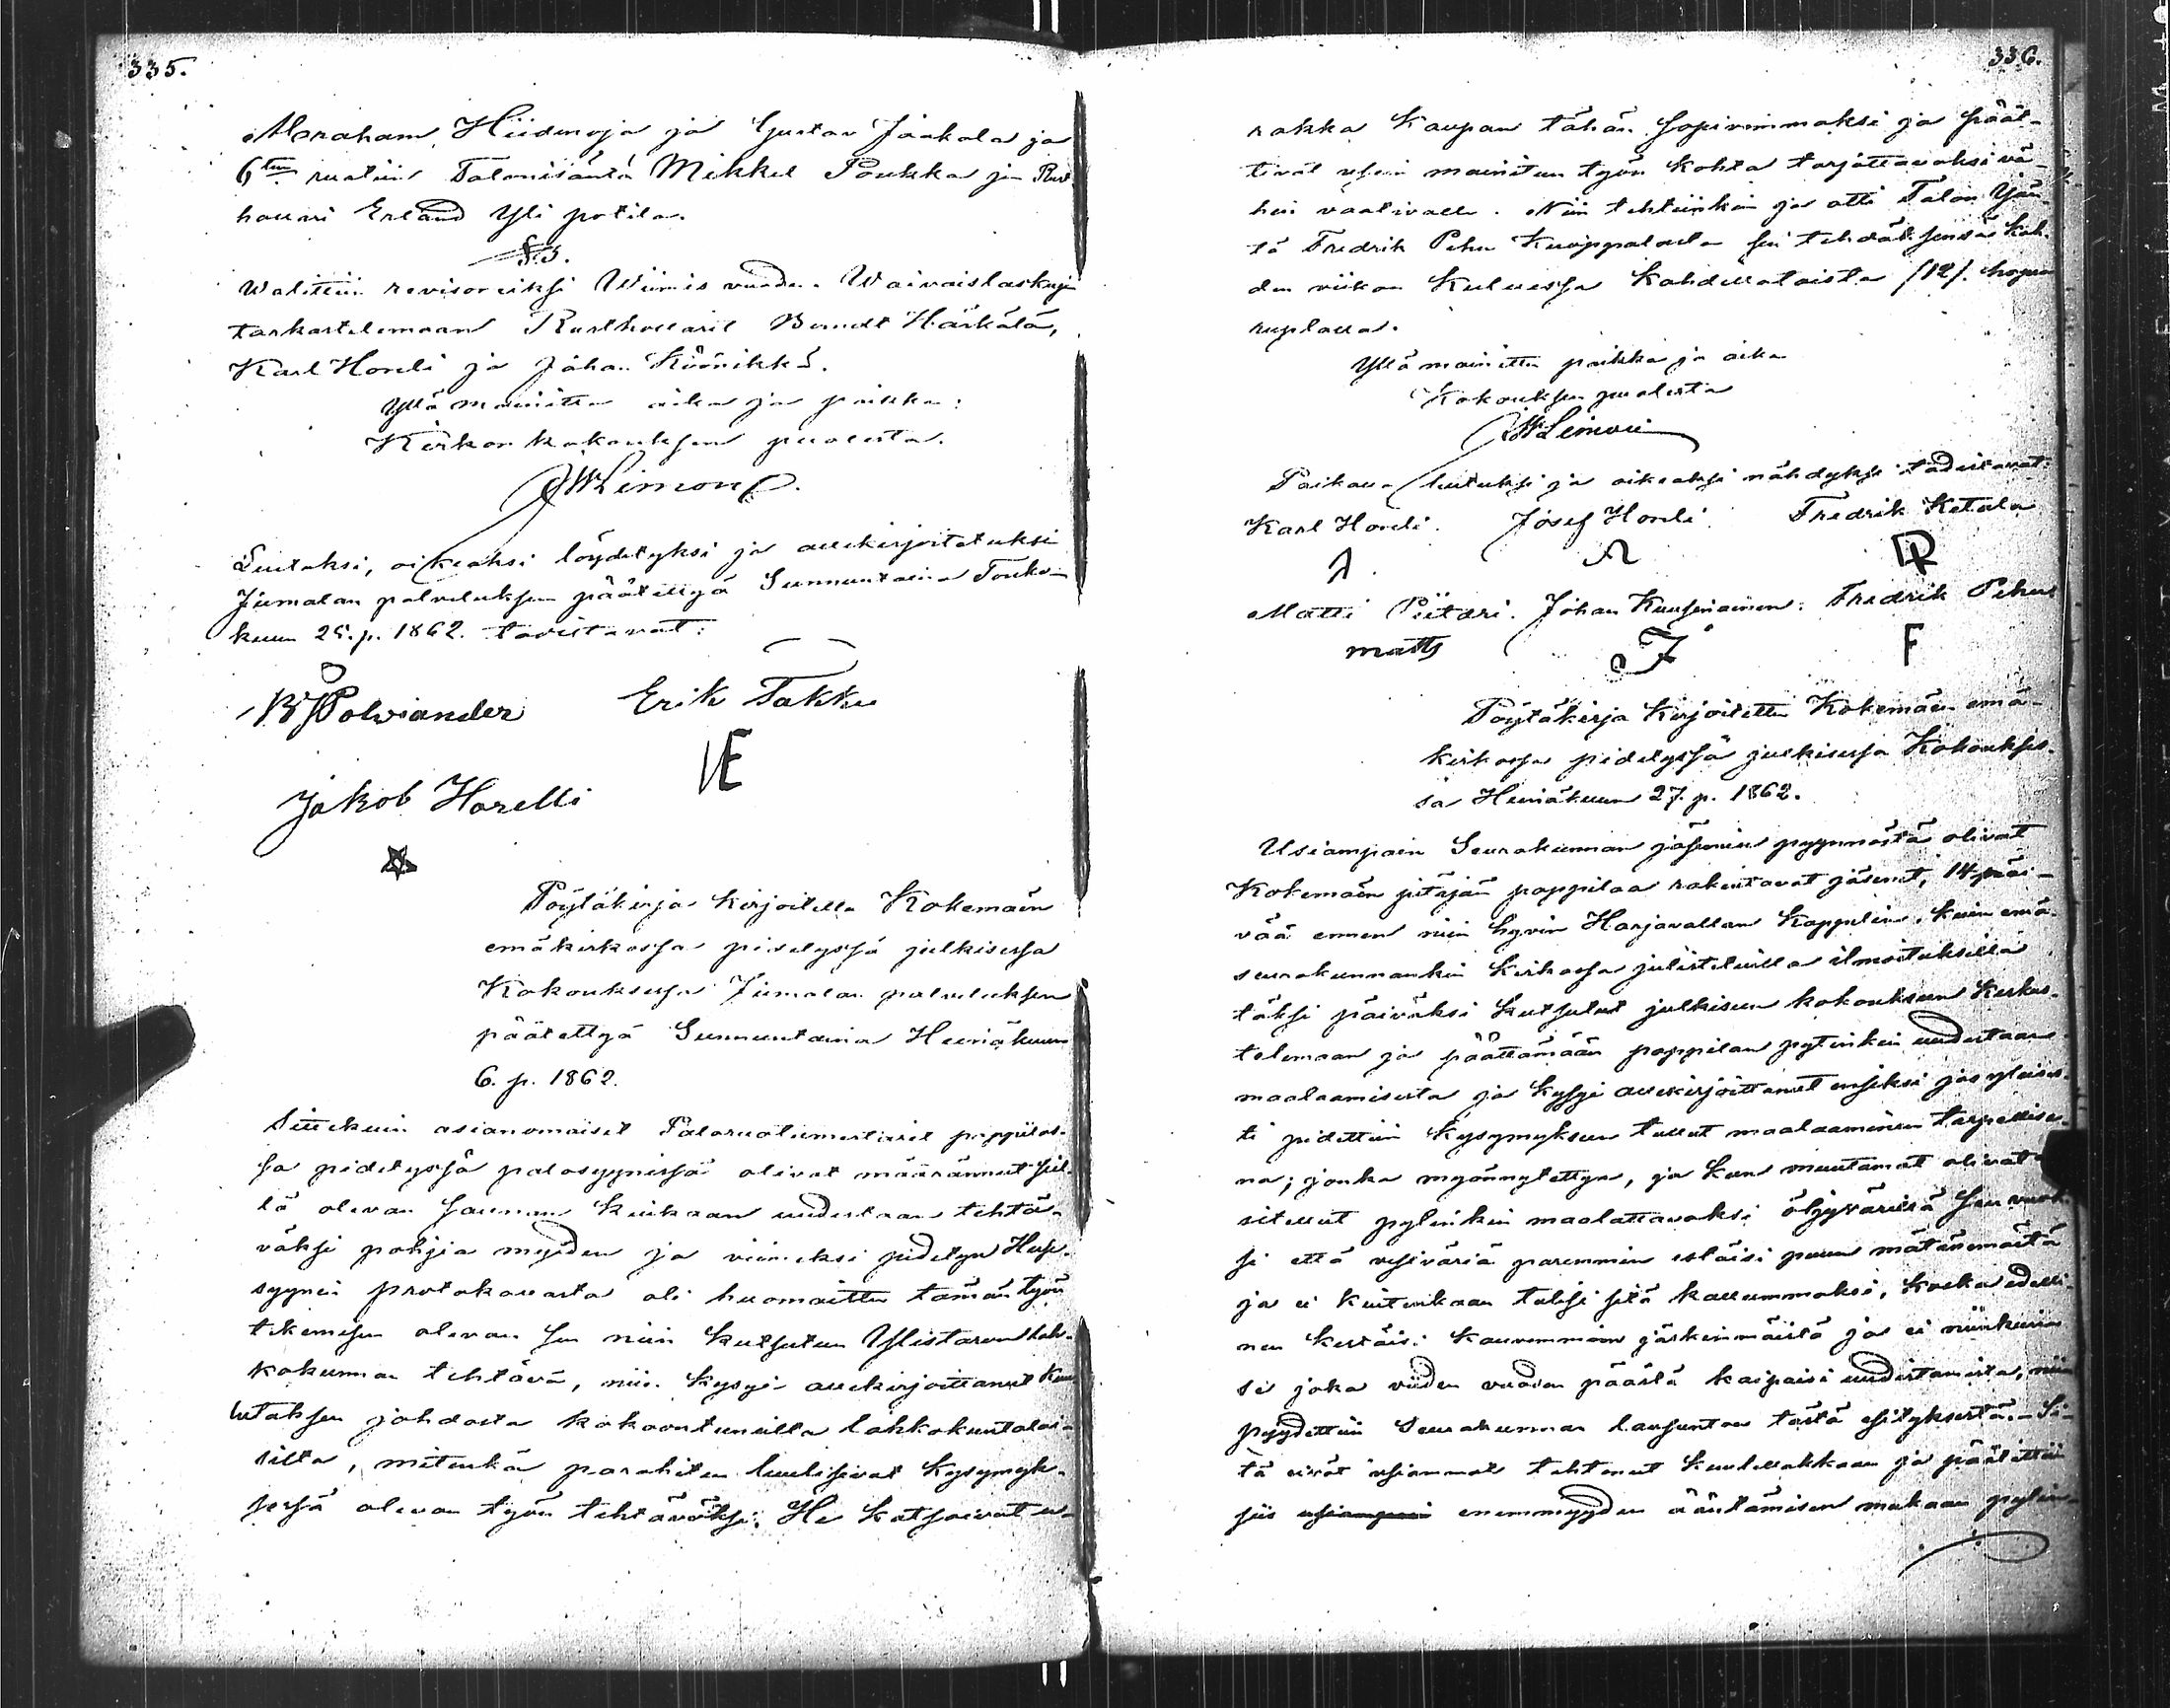 335.
Abraham Hiidenoja ja Gustav Jaakola ja
6ten ruotiin Talonisäntä Mikkel Poukka ja Rust
hollari Erland Yli potila.
§.3.
Walittiin revisoreiksi Wiimis vuoden Waivaislaskuja
tarkastelemaan Rusthollarit Berndt Härkälä,
Karl Horelli ja Johan Köönikkä.
Yllä mainittu aika ja paikka:
Kirkon kokouksen puolesta.
Limon
Luetuksi, oikeaksi löydetyksi ja allekirjoitetuksi
Jumalan palveluksen päätettyä Sunnuntaina Touko-
kuun 25. p. 1862. todistavat:
Polviander Erik Takku
VE
Jakob Horelli
Pöytäkirja kirjoitettu Kokemäen
emäkirkossa pidetyssä julkisessa
Kokouksessa Jumalan palveluksen
päätettyä Sunnuntaina Heinäkuun
6. p. 1862.
Sittekuin asianomaiset Paloruotumestarit pappilas-
sa pidetyssä palosyynissä olivat määränneet siel-
lä olevan saunan kiukaan uudestaan tehtä-
väksi pohjia myöden ja viimeksi pidetyn Huse-
syynin protokollasta oli huomaittu tämän työn
tekemisen olevan sen niin kutsutun Ylistaron lah-
kokunnan tehtävä, niin kysyi allekirjoittanut Kuu
lutuksen johdosta kokoontuneilta lahkokuntalai-
silta, mitenkä parahiten luulisivat kysymyk-
sessä olevan työn tehtäväksi. He katsoivat u-
336.
rakka kaupan tähän sopivimmaksi ja päät-
tivät usein mainitun työn kohta tarjottavaksi vä-
hin vaativalle. Niin tehtiinkin ja otti Talon Ysän
tä Fredrik Pehu Kuoppalasta sen tehdäksensä kah-
den viikon kuluessa kahdellatoista /12/ hopea
ruplalla.
Yllä mainittu paikka ja aika
Kokouksen puolesta
Limon
Paikalla luetuksi ja oikeaksi nähdyksi todistavat:
Karl Horelli. Josef Horelli. Fredrik Ketala
Matti Piitari. Johan Kuusinainen. Fredrik Pehu
matts J F
Pöytäkirja kirjoitettu Kokemäen emä-
kirkossa pidetyssä julkisessa Kokoukses-
sa Heinäkuun 27. p. 1862.
Usiampain Seurakunnan jäsenien pyynnöstä olivat
Kokemäen pitäjän pappilaa rakentavat jäsenet, 14 päi-
vää ennen niin hyvin Harjavallan Kappelin, kuin emä-
seurakunnankin kirkossa julistetuilla ilmoituksilla
täksi päiväksi kutsutut julkiseen kokoukseen keskus-
telemaan ja päättämään pappilan pytinkin uudestaan
maalaamisesta ja kysyi allekirjoittanut ensiksi jos yleises-
ti pidettiin kysymykseen tullut maalaaminen tarpellise-
na; jonka myönnytettyä, ja kun muutamat olivat e
sitelleet pytinkin maalattavaksi öljyvärillä sen vuok-
si että vesiväriä paremmin estäisi puun mätänemästä
ja ei kuitenkaan tulisi sitä kalliimmaksi, koska edelli-
nen kestäisi kauvemmin järkeinmäistä ja ei niinkuin
se joka viiden vuoden päästä kaipaisi uudistamista, niin
pyydettiin Seurakunnan lausuntoa tästä esityksestä. Si-
tä eivät usiammat tahtoneet kuullakkaan ja päätettiin
siis usiampain enemmyyden ääntämisen mukaan pytin-